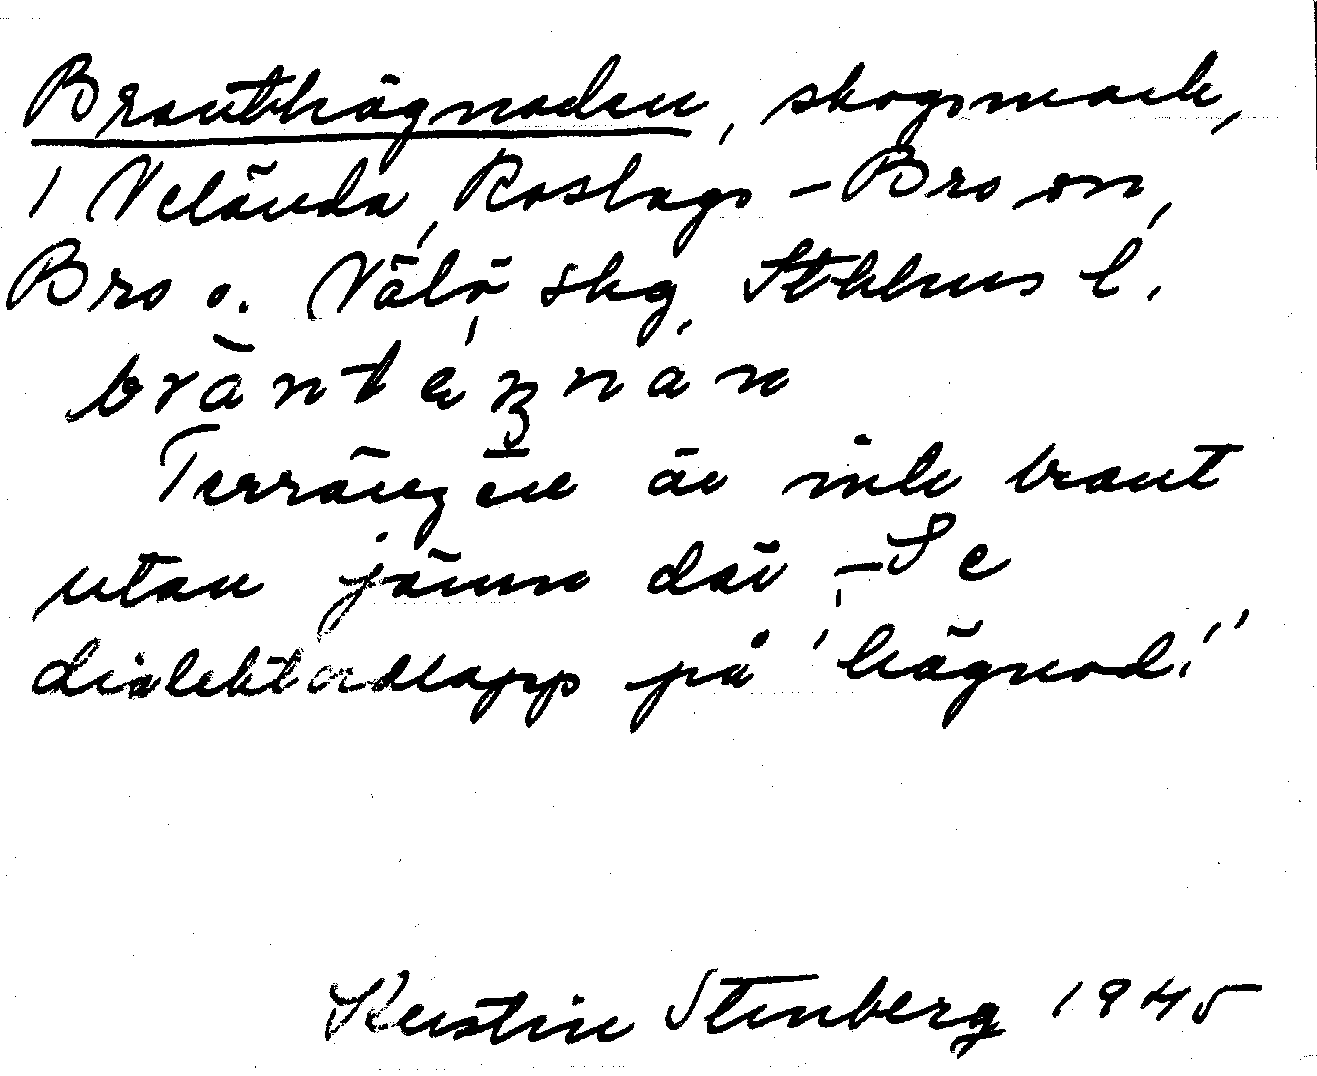 Branthägnaden, skogsmark,
i Veländа, Roslags-Bro sn,
Bro o. Vätö skg, Stkhlms l.
Terrängen är inte brant
utan jämn där. – Se
dialektordlapp på 'hägnad'.
Kerstin Stenberg 1945